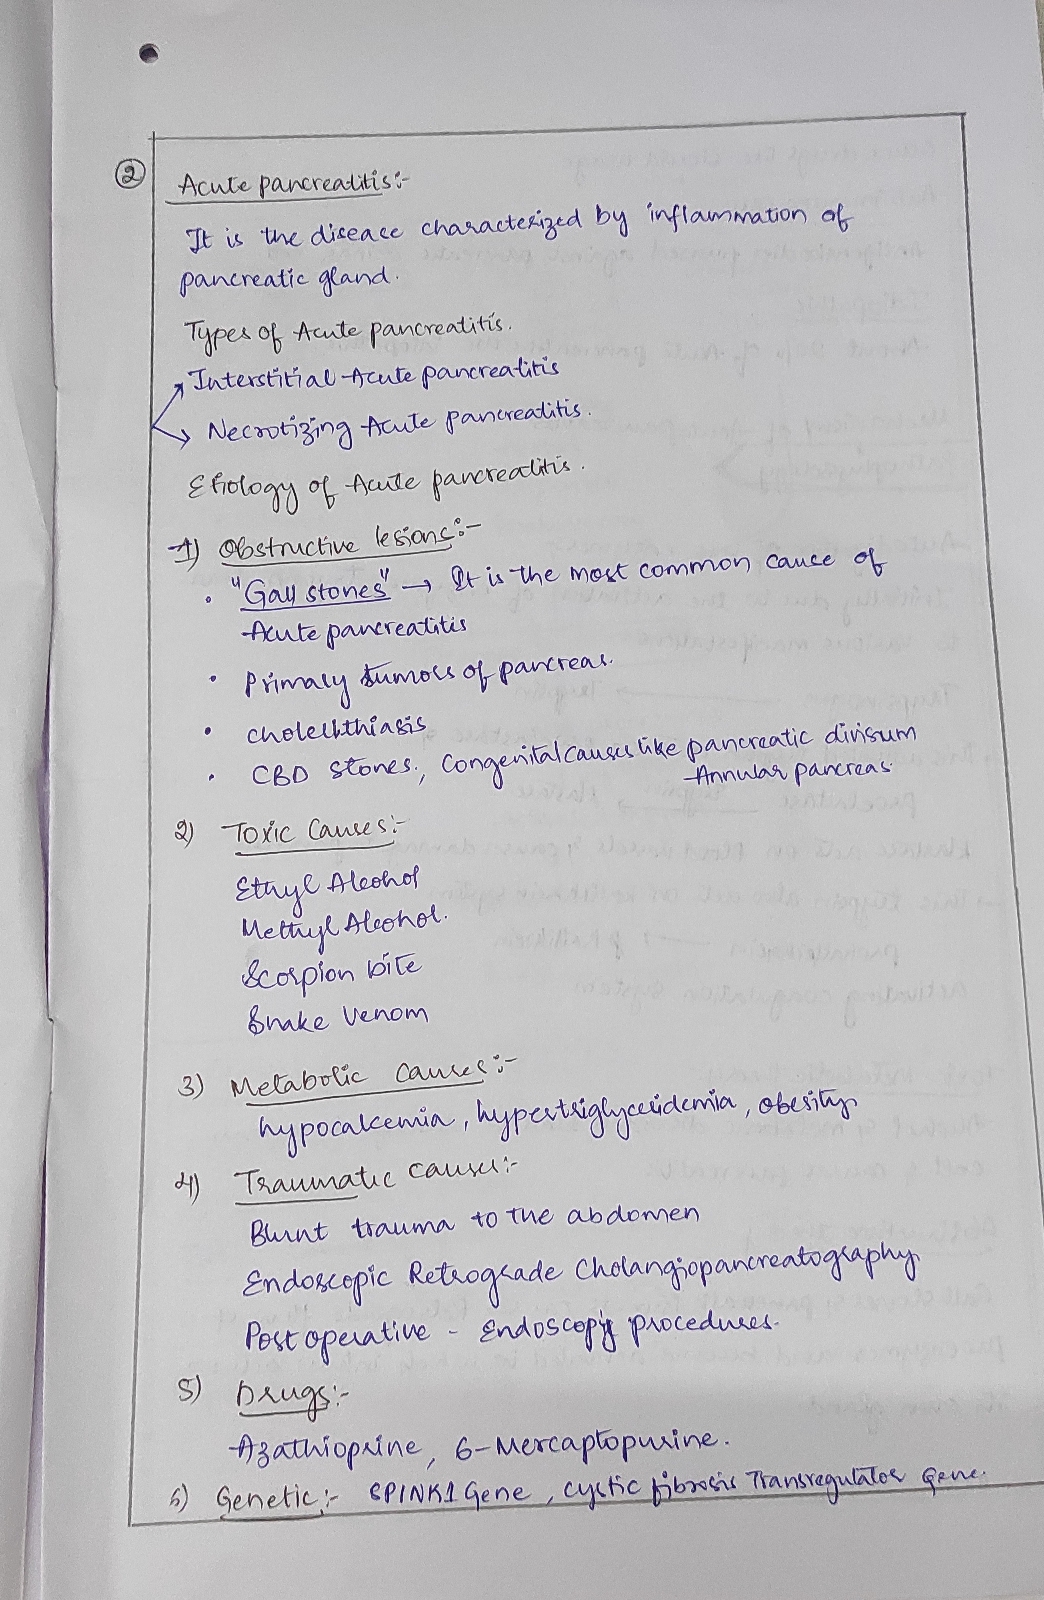 ②
Acute pancreatitis:-
It is the disease characterized by inflammation of
pancreatic gland.
Types of Acute pancreatitis.
Interstitial Acute pancreatitis
Necrotizing Acute pancreatitis.
Etiology of Acute pancreatitis.
1) Obstructive lesions:-
• "Gall stones" → It is the most common cause of
Acute pancreatitis
• Primary tumors of pancreas.
• cholelithiasis
• CBD stones, Congenital causes like pancreatic divisum
Annular pancreas.
2) Toxic Causes:-
Ethyl Alcohol
Methyl Alcohol.
Scorpion bite
Snake Venom
3) Metabolic Causes:-
hypocalcemia, hypertriglyceridemia, obesity
4) Traumatic causes:-
Blunt trauma to the abdomen
Endoscopic Retrograde Cholangiopancreatography
Post operative - Endoscopy procedures.
5) Drugs:-
Azathioprine, 6-Mercaptopurine.
6) Genetic:- SPINK1 Gene, cystic fibrosis Transregulator Gene.